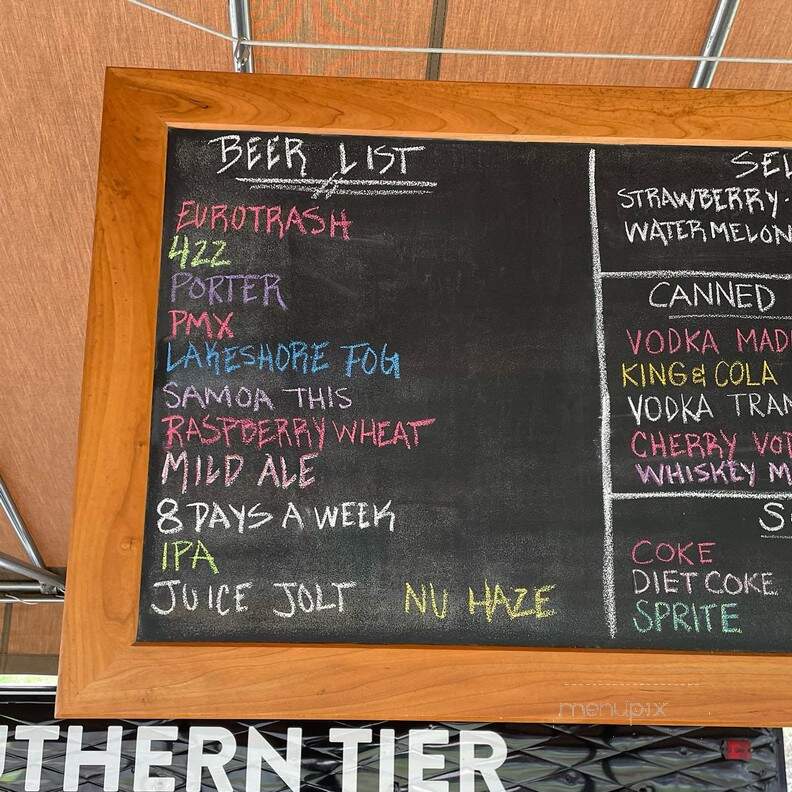 BEER LIST
EUROTRASH
422
PORTER
PMX
LAKESHORE FOG
SAMOA THIS
RASPBERRY WHEAT
MILD ALE
8 DAYS A WEEK
IPA
JUICE JOLT NU HAZE
SEL
STRAWBERRY-
WATERMELON
CANNED
VODKA MAD
KING & COLA
VODKA TRAN
CHERRY VOD
WHISKEY M
S
COKE
DIET COKE
SPRITE
menupix
THERN TIER